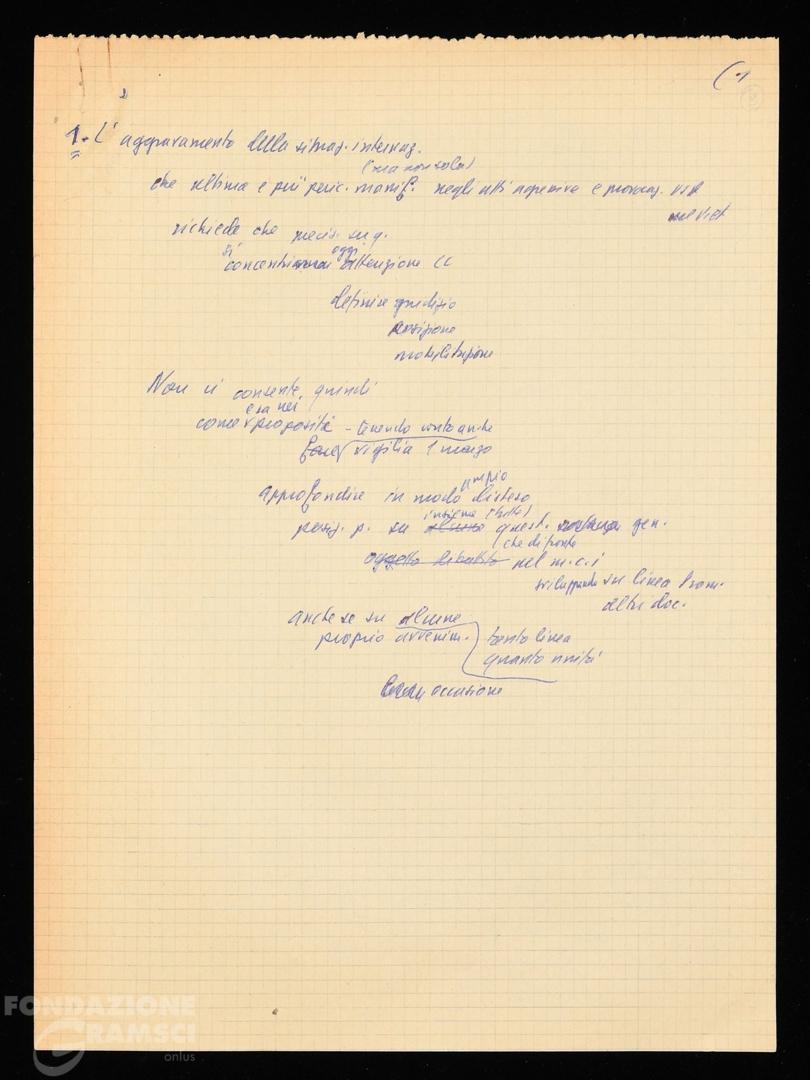 1. L'aggravamento della situaz. internaz.
(ma non sola)
che ultima e più peric. manif. negli atti aggressivi e provocaz. USA
nel Viet
richiede che
si concentri oggi attenzione CC
definire giudizio
posizione
mobilitazione
Non ci consente, quindi
come proposità - tenendo conto anche
vigilia 1 marzo
approfondire in modo ampio disteso
posiz. p. su insieme (tutto) quest. gen.
(che di fronte
oggetto dibattito nel m.c.i
sviluppando su linea Prom.
altri doc.
anche se su alcune
proprio avvenim. tanto linea
quanto unità
occasione
FONDAZIONE
GRAMSCI
onlus